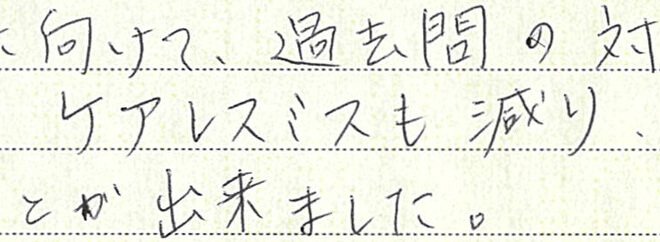 に向けて、過去問の対
ケアレスミスも減り、
とが出来ました。